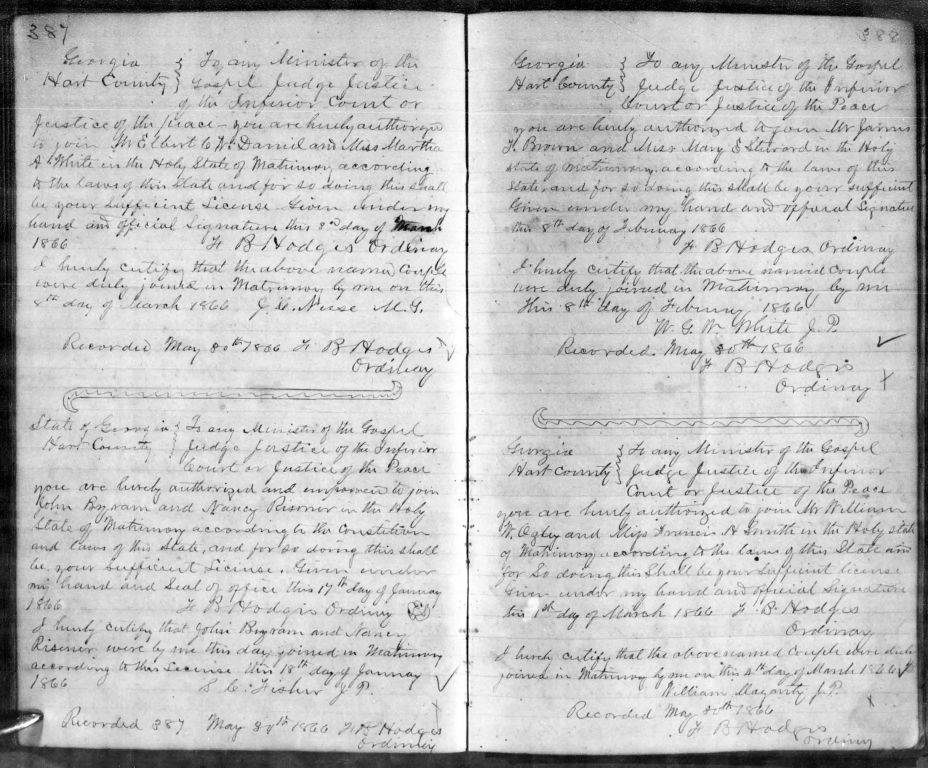 387
Georgia } To any Minister of the
Hart County } Gospel Judge Justice
of the Inferior Court or
Justice of the peace - you are hereby authorized
to join Mr Elbert C Mc Daniel and Miss Martha
A White in the Holy State of Matimony according
to the laws of this State and for so doing this shall
be your sufficient License Given under my
hand and official Signature this day of March
1866 F B Hodges Ordinary
I hereby certify that the above named Couple
were duly joined in Matrimony by me on this
8th day of March 1866 J. G. M. G.
Recorded May 30th 1866 F B Hodges
Ordinary
State of Georgia } To any Minister of the Gospel
Hart County } Judge Justice of the Inferior
Court or Justice of the Peace
you are hereby authorized and empowered to join
John Byram and Nancy in the Holy
State of Matimony according to the Constitution
and laws of this State, and for so doing this shall
be your Sufficient License. Given under
my hand and Seal of office this 17th day of January
1866 F B Hodges Ordinary
I hereby certify that John Byram and Nancy
were by me this day joined in Matimony
according to this License this 18th day of January
1866 S. C. Fisher J. P.
Recorded 387 May 30th 1866 F B Hodges
Ordinary
388
Georgia } To any Minister of the Gospel
Hart County } Judge Justice of the Inferior
Court or Justice of the Peace
you are hereby authorized to join Mr James
F. Brown and Miss Mary E in the Holy
State of Matrimony according to the laws of this
State and for so doing this shall be your sufficient
Given under my hand and official Signature
this 8th day of February 1866
F B Hodges Ordinary
I hereby certify that the above named couple
were duly joined in Matrimony by me
This 8th day of February 1866
W. G. W. White J. P.
Recorded May 30th 1866
F B Hodges
Ordinary
Georgia } To any Minister of the Gospel
Hart County } Judge Justice of the Inferior
Court or Justice of the Peace
you are hereby authorized to join Mr William
W. Oglby and Miss Francis A Smith in the Holy state
of Matimony according to the laws of this State and
for So doing this Shall be your Sufficient license
Given under my hand and official Signature
this 1st day of March 1866 F. B. Hodges
Ordinary
I hereby certify that the above named Couple were duly
joined in Matimony by me on this 4th day of March 1866
William J. P.
Recorded May 30th 1866
F B Hodges
Ordinary